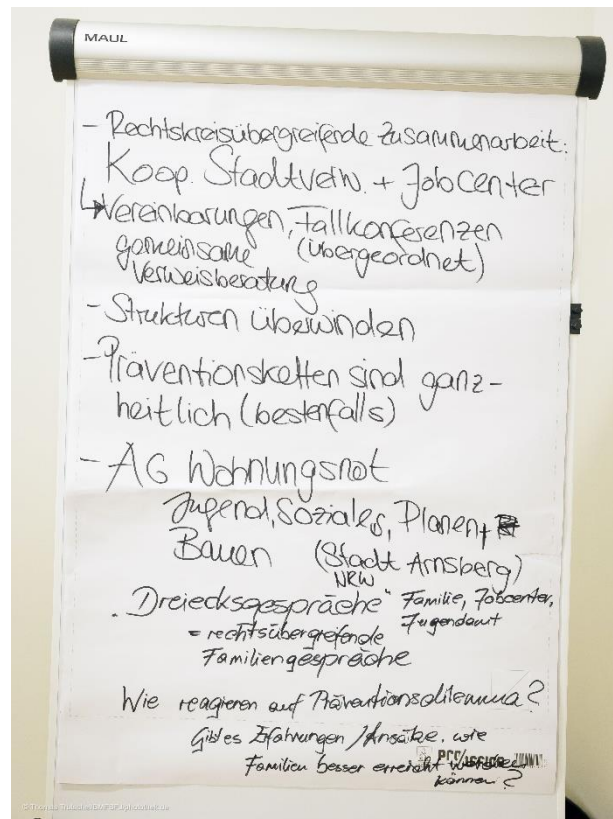 MAUL
- Rechtskreisübergreifende Zusammenarbeit:
Koop. Stadtverw. + Jobcenter
↳ Vereinbarungen, Fallkonferenzen
gemeinsame (übergeordnet)
Verweisberatung
- Strukturen überwinden
- Präventionsketten sind ganz-
heitlich (bestenfalls)
- AG Wohnungsnot
Jugend, Soziales, Planen +
Bauen (Stadt Arnsberg)
NRW
„Dreiecksgespräche“ Familie, Jobcenter,
Jugendamt
= rechtsübergreifende
Familiengespräche
Wie reagieren auf Präventionsdilemma?
Gibt es Erfahrungen / Ansätze, wie
Familien besser erreicht werden
können?